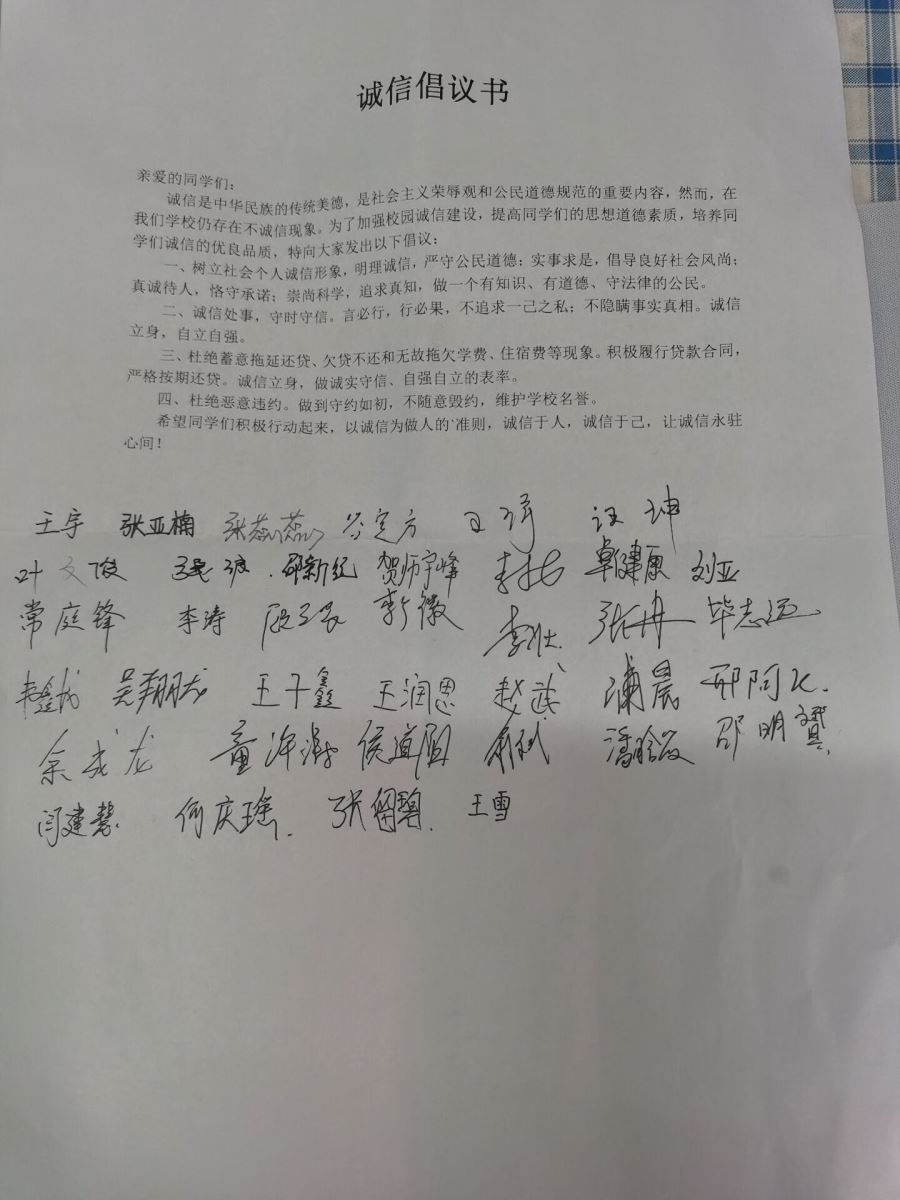 诚信倡议书
亲爱的同学们：
诚信是中华民族的传统美德，是社会主义荣辱观和公民道德规范的重要内容，然而，在
我们学校仍存在不诚信现象。为了加强校园诚信建设，提高同学们的思想道德素质，培养同
学们诚信的优良品质，特向大家发出以下倡议：
一、树立社会个人诚信形象，明理诚信，严守公民道德；实事求是，倡导良好社会风尚；
真诚待人，恪守承诺；崇尚科学，追求真知，做一个有知识、有道德、守法律的公民。
二、诚信处事，守时守信。言必行，行必果，不追求一己之私；不隐瞒事实真相。诚信
立身，自立自强。
三、杜绝蓄意拖延还贷、欠贷不还和无故拖欠学费、住宿费等现象。积极履行贷款合同，
严格按期还贷。诚信立身，做诚实守信、自强自立的表率。
四、杜绝恶意违约。做到守约如初，不随意毁约，维护学校名誉。
希望同学们积极行动起来，以诚信为做人的`准则，诚信于人，诚信于己，让诚信永驻
心间！
王宇 张亚楠 张蕊蕊 汪坤
叶文俊 邵新纪 贺师宇峰 卓健康 刘亚
常庭锋 李涛 李徽 李壮 张冉 毕志远
吴翔龙 王千鑫 王润恩 赵武 浦晨 邢阿飞
余成龙 侯道固 邵明赞
闫建慧 何庆瑶 张留碧 王雪